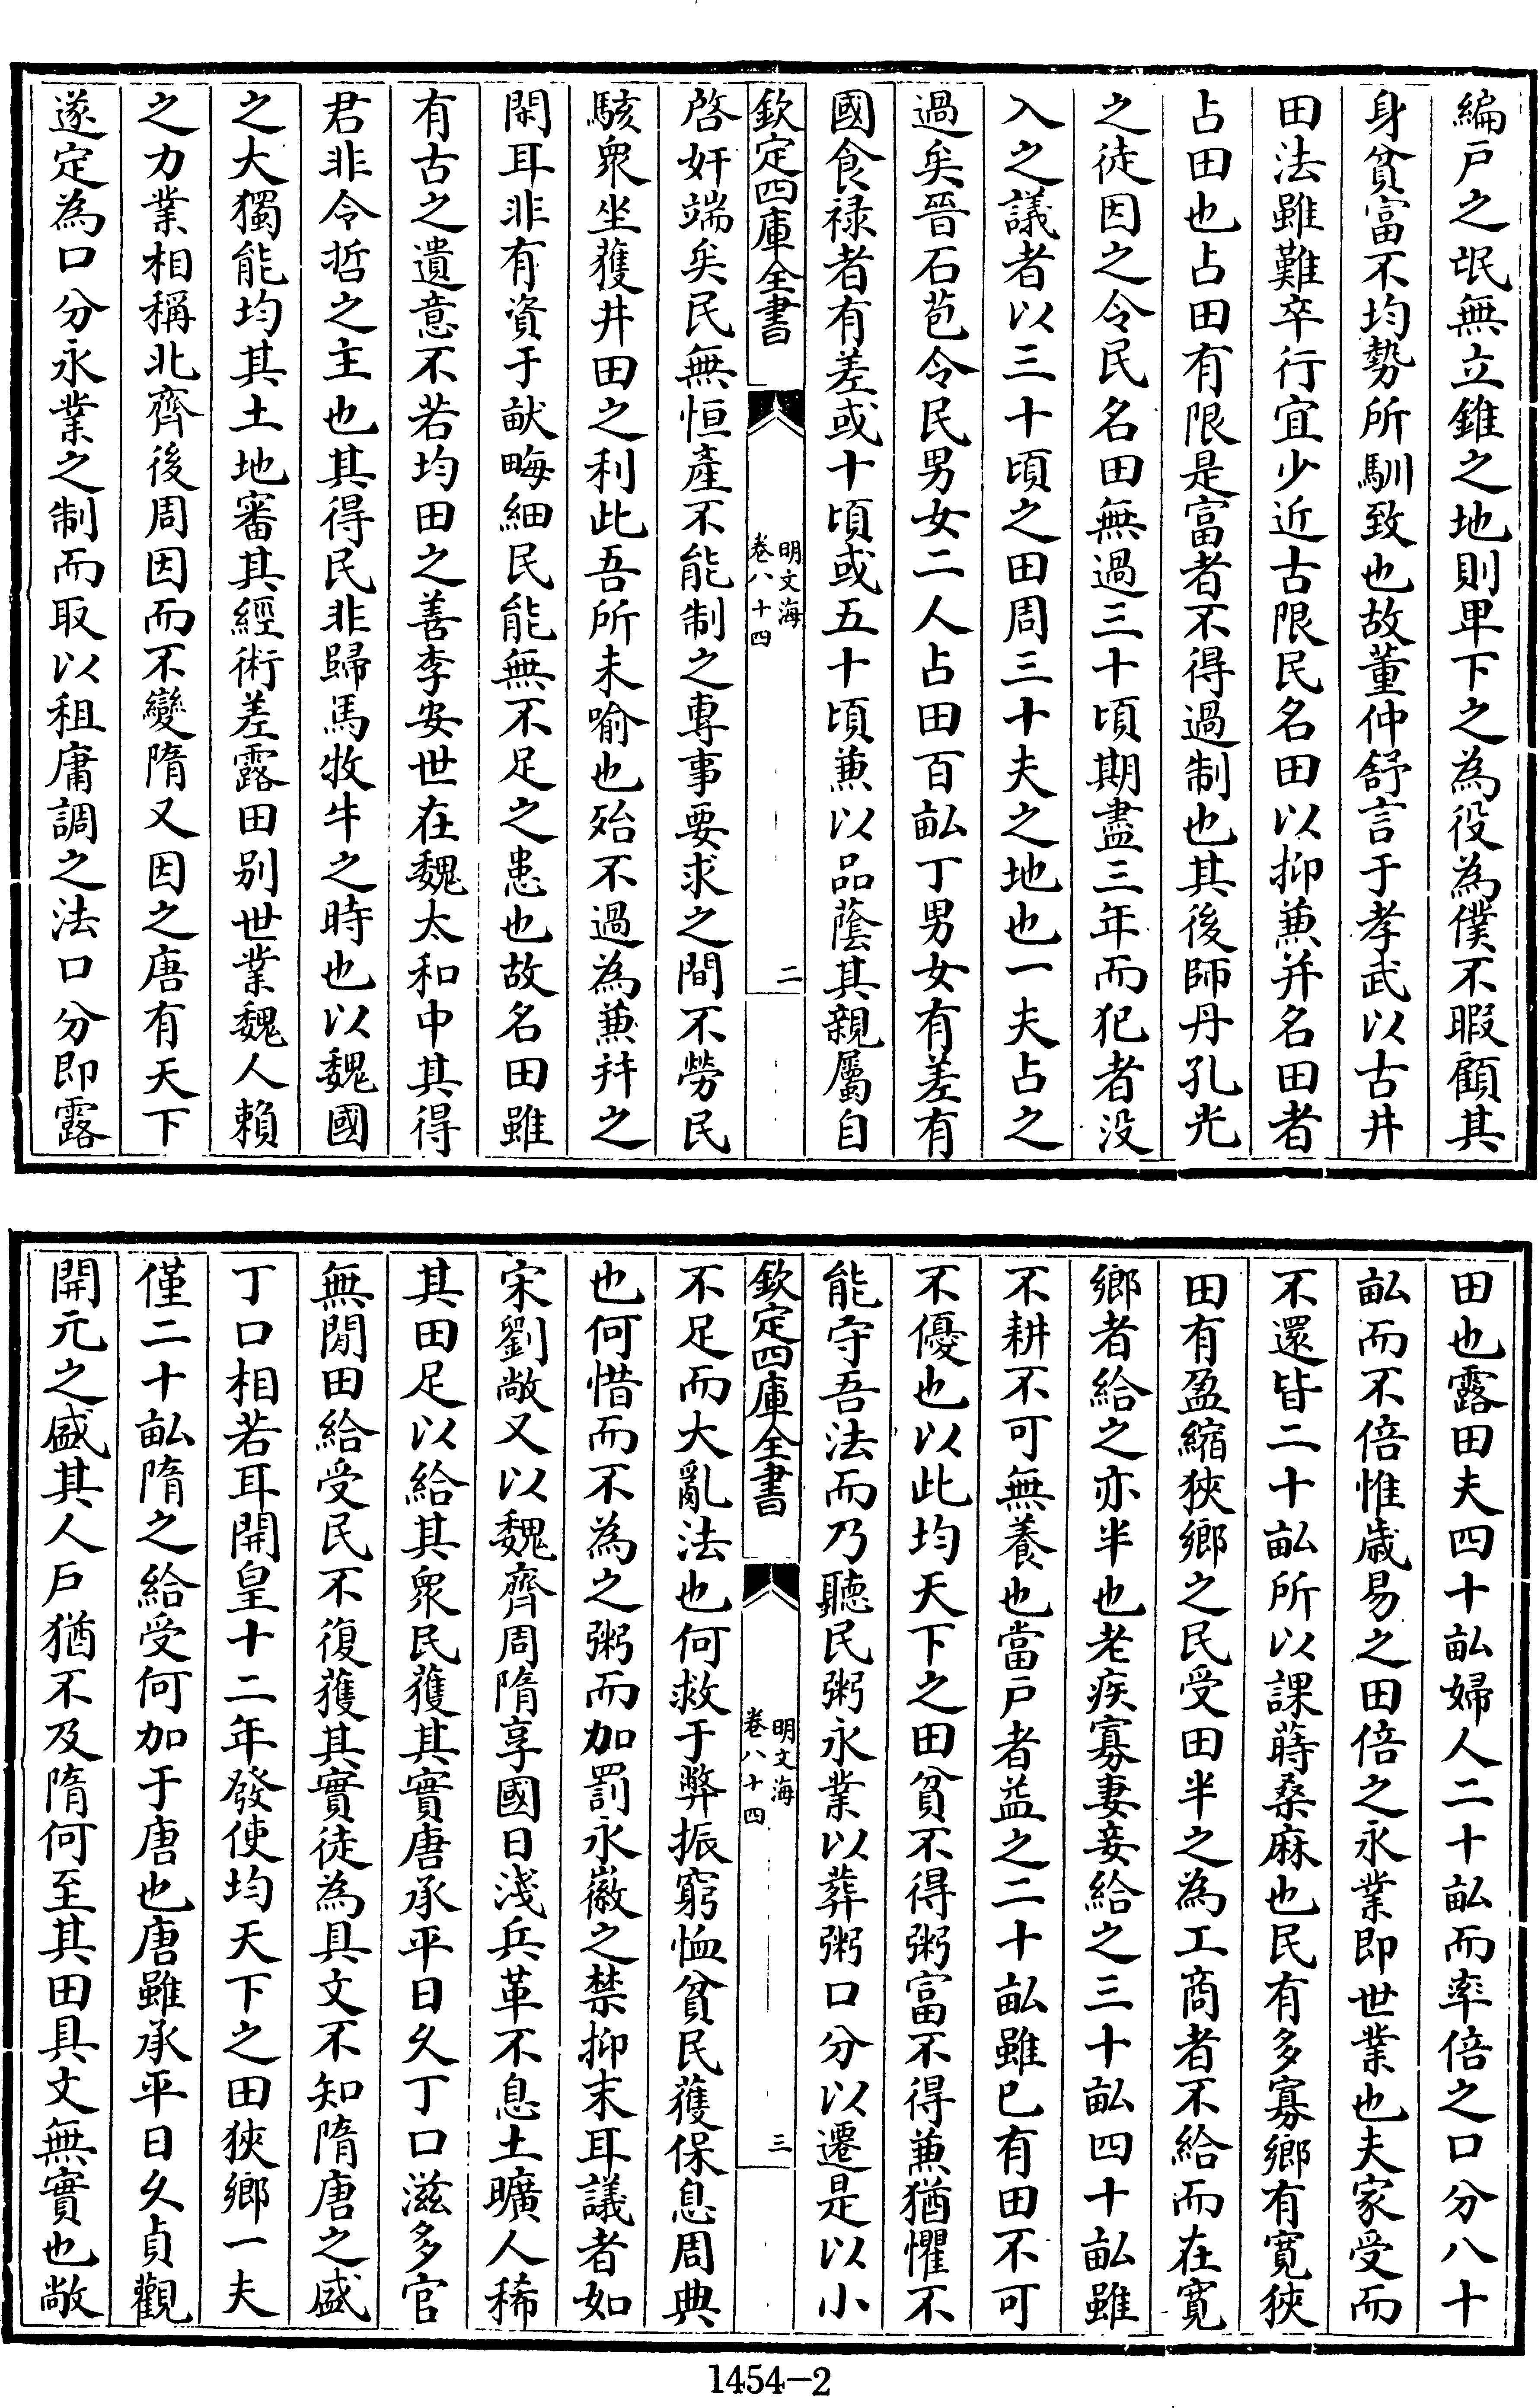 編戸之氓無立錐之地則卑下之為役為僕不暇顧其
身貧富不均勢所馴致也故董仲舒言于孝武以古井
田法雖難卒行宜少近古限民名田以抑兼并名田者
占田也占田有限是富者不得過制也其後師丹孔光
之徒因之令民名田無過三十頃期盡三年而犯者没
入之議者以三十頃之田周三十夫之地也一夫占之
過矣晉石苞令民男女二人占田百畝丁男女有差有
國食禄者有差或十頃或五十頃兼以品蔭其親屬自
欽定四庫全書
明文海
卷八十四
二
啓奸端矣民無恒產不能制之專事要求之間不勞民
駭衆坐獲井田之利此吾所未喻也殆不過為兼并之
閑耳非有資于畎畮細民能無不足之患也故名田雖
有古之遺意不若均田之善李安世在魏太和中其得
君非令哲之主也其得民非歸馬牧牛之時也以魏國
之大獨能均其土地審其經術差露田别世業魏人賴
之力業相稱北齊後周因而不變隋又因之唐有天下
遂定為口分永業之制而取以租庸調之法口分即露
田也露田夫四十畝婦人二十畝而率倍之口分八十
畝而不倍惟歳易之田倍之永業即世業也夫家受而
不還皆二十畝所以課蒔桑麻也民有多寡鄉有寛狹
田有盈縮狹鄉之民受田半之為工商者不給而在寛
鄉者給之亦半也老疾寡妻妾給之三十畝四十畝雖
不耕不可無養也當戸者益之二十畝雖已有田不可
不優也以此均天下之田貧不得粥富不得兼猶懼不
能守吾法而乃聽民粥永業以葬粥口分以遷是以小
欽定四庫全書
明文海
卷八十四
三
不足而大亂法也何救于弊振窮恤貧民獲保息周典
也何惜而不為之粥而加罰永徽之禁抑末耳議者如
宋劉敞又以魏齊周隋享國日淺兵革不息土曠人稀
其田足以給其衆民獲其實唐承平日久丁口滋多官
無閒田給受民不復獲其實徒為具文不知隋唐之盛
丁口相若耳開皇十二年發使均天下之田狹鄉一夫
僅二十畝隋之給受何加于唐也唐雖承平日久貞觀
開元之盛其人戸猶不及隋何至其田具文無實也敞
1454-2